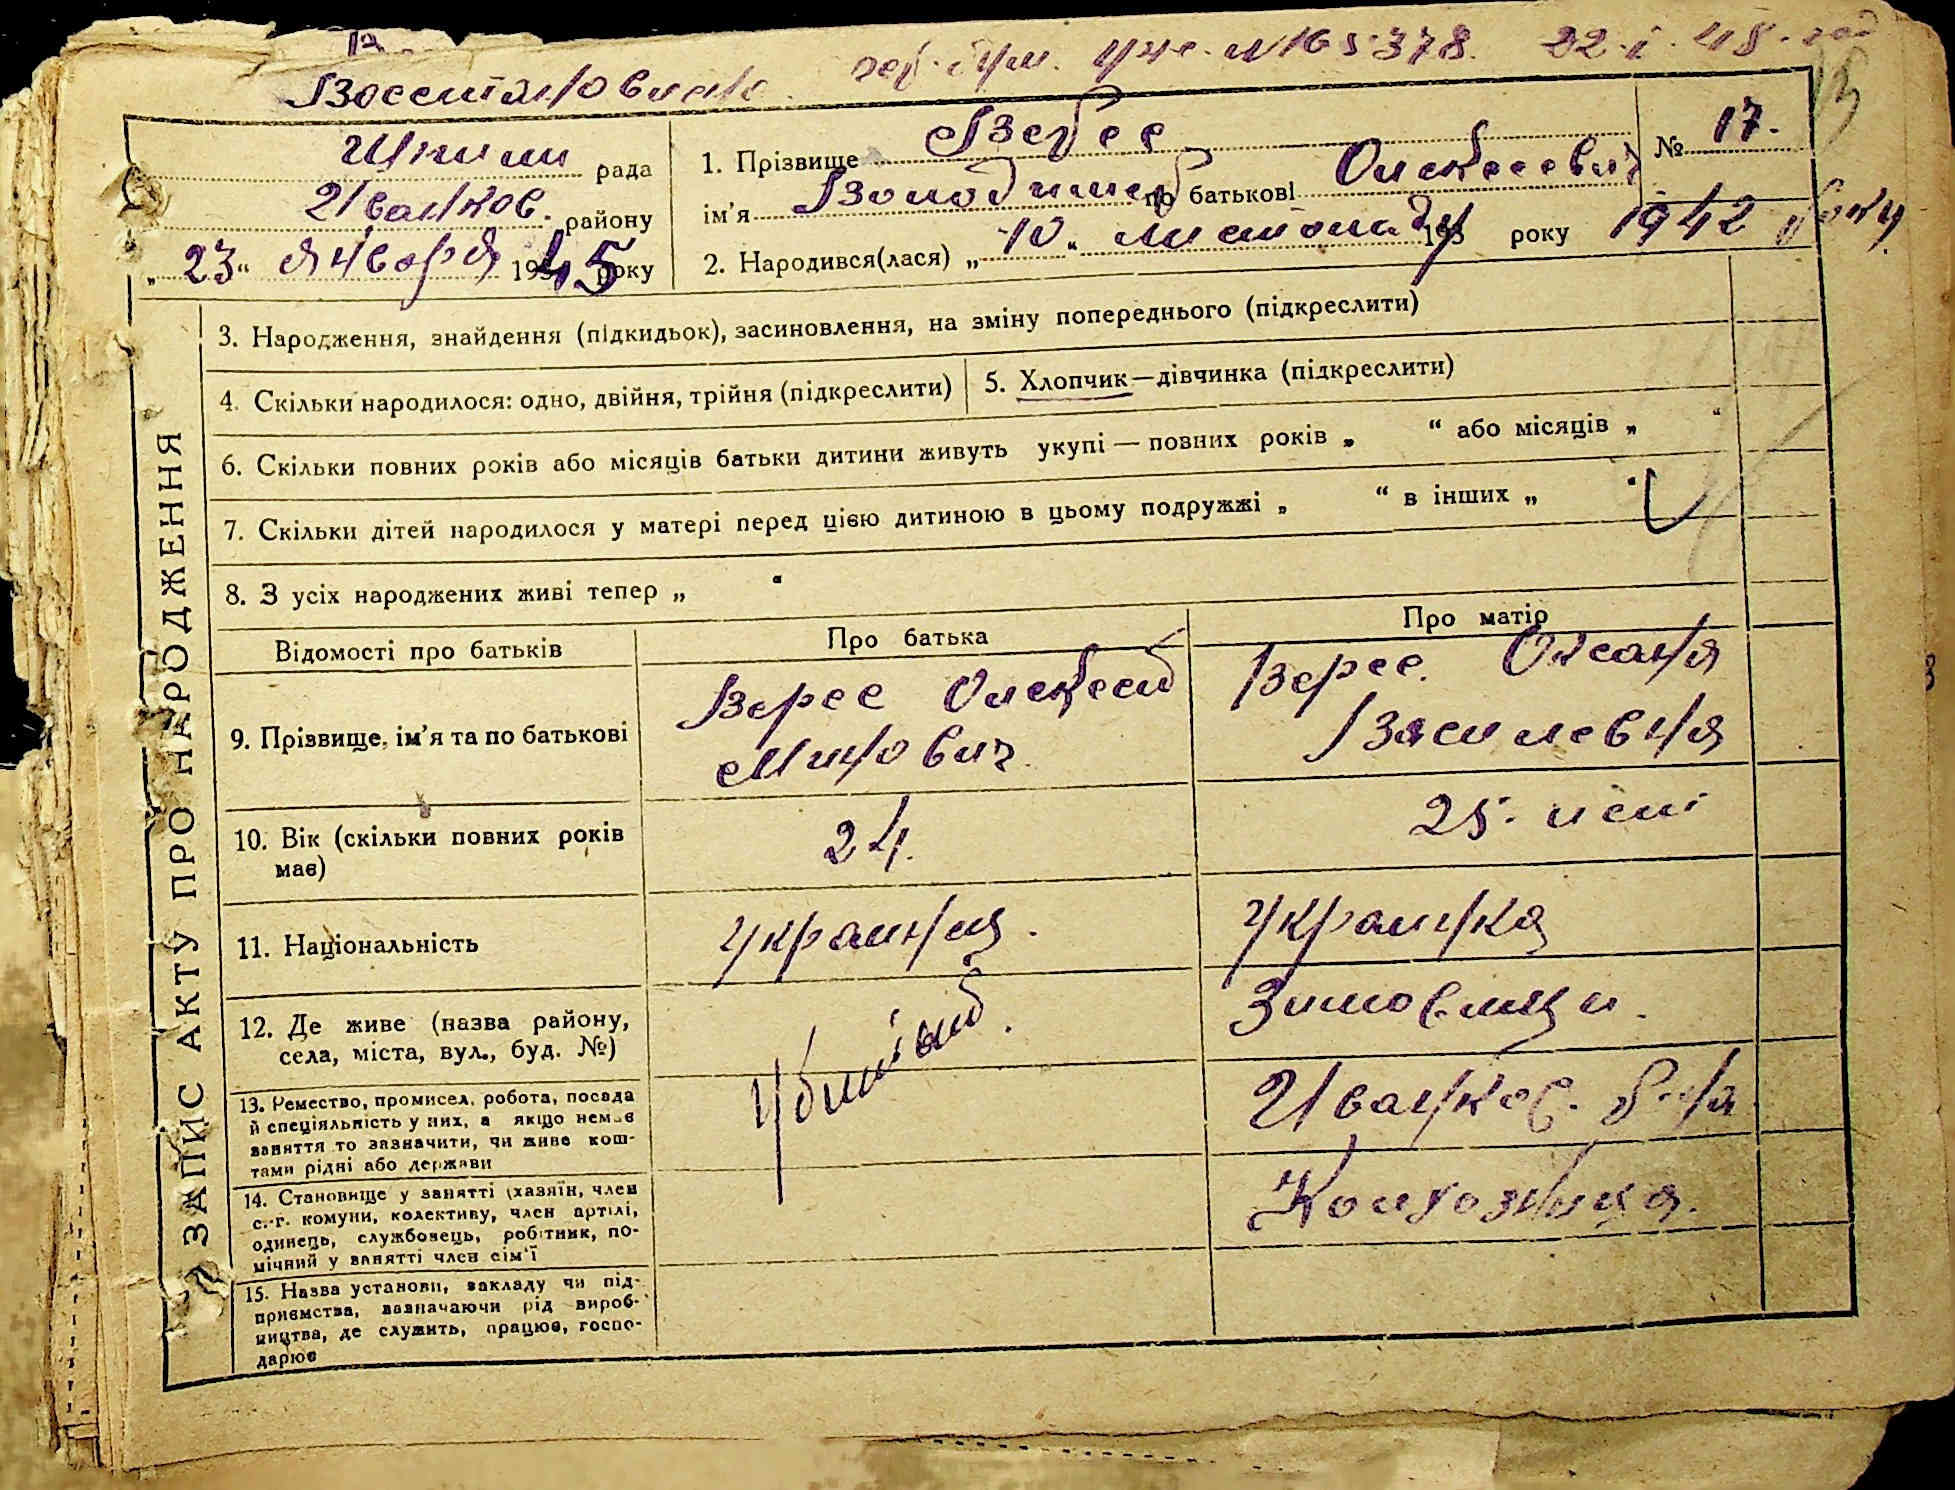 Восстановлено. 22.І.45. год
рада
1. Прізвище Верес
№ 17.
Іванков. району
ім'я Володимер по батькові Олексеевич
„23“ января 1945 року
2. Народився(лася) „10“ листопаду 193 року 1942 року
3. Народження, знайдення (підкидьок), засиновлення, на зміну попереднього (підкреслити)
4. Скільки народилося: одно, двійня, трійня (підкреслити)
5. Хлопчик—дівчинка (підкреслити)
6. Скільки повних років або місяців батьки дитини живуть укупі — повних років „ “ або місяців „ “
7. Скільки дітей народилося у матері перед цією дитиною в цьому подружжі „ “ в інших „ “
8. З усіх народжених живі тепер „ “
ЗАПИС АКТУ ПРО НАРОДЖЕННЯ
Відомості про батьків
Про батька
Про матір
9. Прізвище, ім'я та по батькові
Верес Олексей
Минович
Верес. Оксана
Василевна
10. Вік (скільки повних років
має)
24.
25. лет
11. Національність
украинец.
украинка
12. Де живе (назва району,
села, міста, вул., буд. №)
Убитый.
Зимовище.
13. Ремество, промисел, робота, посада
й спеціяльність у них, а якщо немає
заняття то зазначити, чи живе кош-
тами рідні або держави
Иванков. р-на
14. Становище у занятті (хазяїн, член
с.-г. комуни, колективу, член артілі,
одинець, службовець, робітник, по-
мічний у занятті член сім'ї
Колхозница.
15. Назва установи, закладу чи під-
приємства, зазначаючи рід вироб-
ництва, де служить, працює, госпо-
дарює